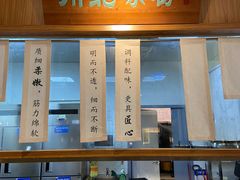 北
质细柔嫩，筋力绵软
明而不透，细而不断
调料配味，更具匠心